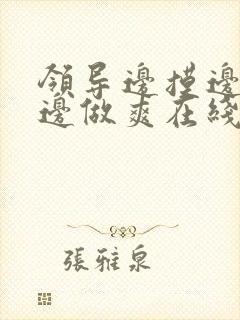 領导邊摸邊
邊做爽在綫
張雅泉